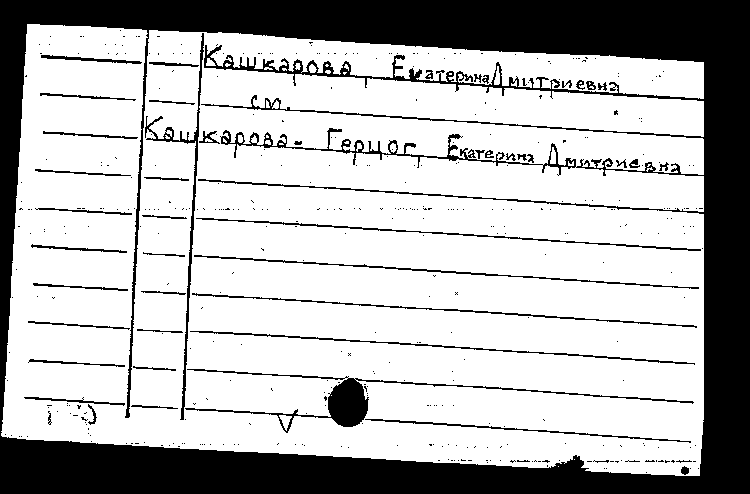 Кашкарова, Екатерина Дмитриевна
см.
Кашкарова-Герцог, Екатерина Дмитриевна
V